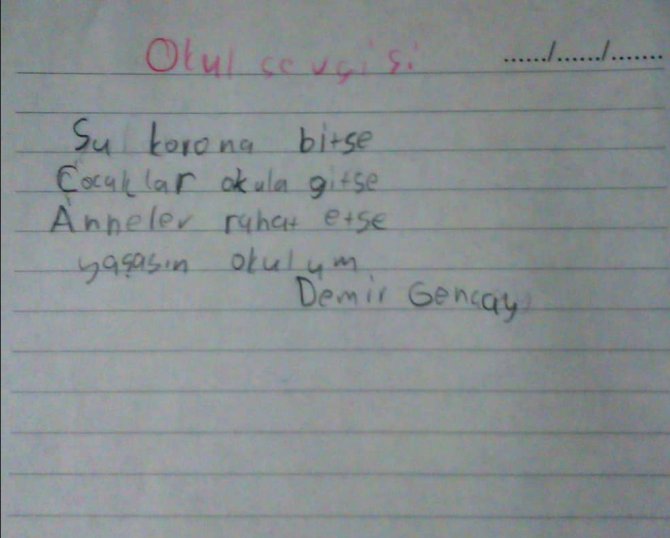 Okul sevgisi ....../....../.......
Su korona bitse
Çocuklar okula gitse
Anneler rahat etse
yaşasın okulum
Demir Gencay